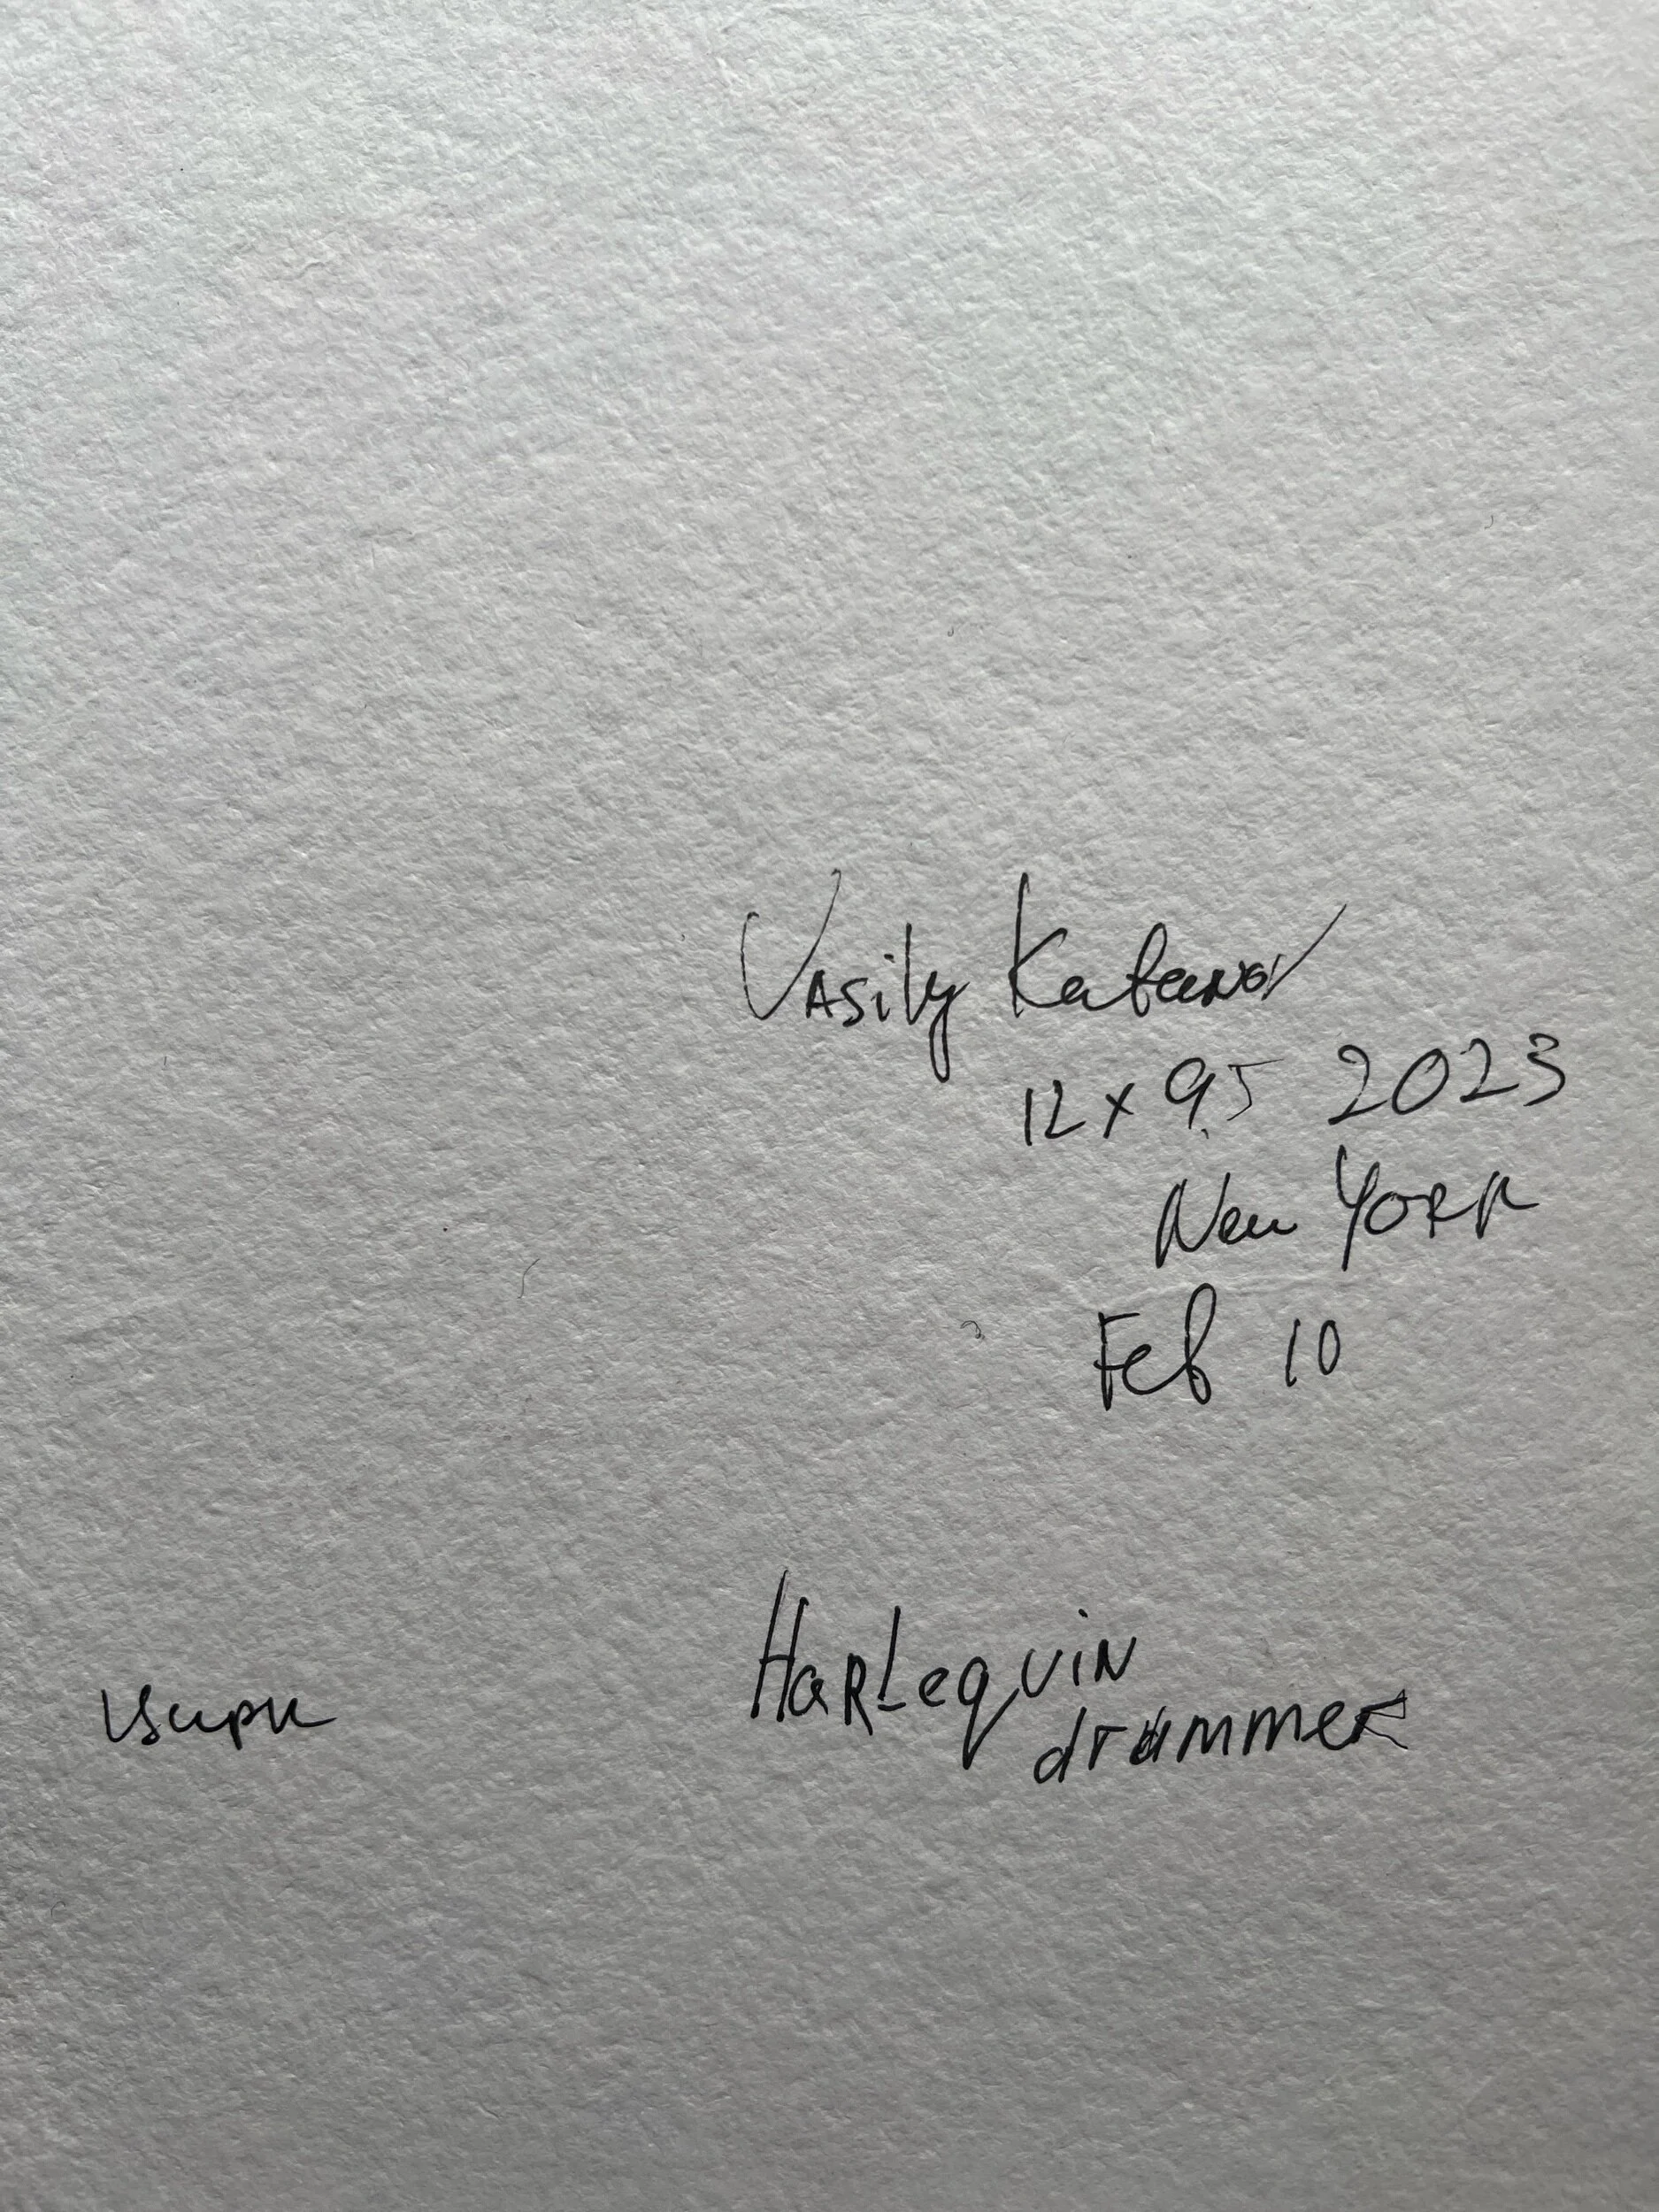 Vasily Kafanov
12 x 9.5 2023
New York
Feb 10
Harlequin
drummer